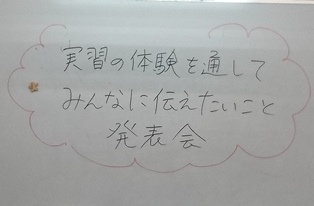 実習の体験を通して
みんなに伝えたいこと
発表会